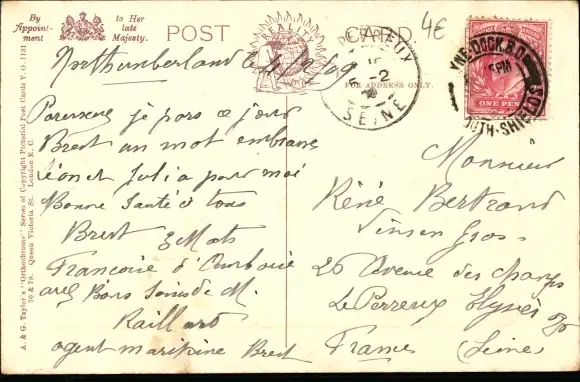 By Appoint-ment
to Her late Majesty.
POST
CARD.
4€
REALITY
FOR ADDRESS ONLY.
A. & G. Taylor's "Orthochrome" Series of Copyright Pictorial Post Cards V.O. 1121
70 & 78, Queen Victoria St. London E. C.
PERREUX
15
-2
SEINE
TYNE-DOCK.B.O
5PM
SOUTH-SHIELDS
ONE PENNY
Northumberland le 4/2/09
je pars ce jour
Brest un mot
Léon et Julia pour moi
Bonne Santé à tous
Brest 3 Mats
Françoise d'
avec Bons Soins de M.
Raillard
agent maritime Brest
Monsieur
Réné Bertrand
26 Avenue des Champs
Le Perreux Elysées
France (Seine)